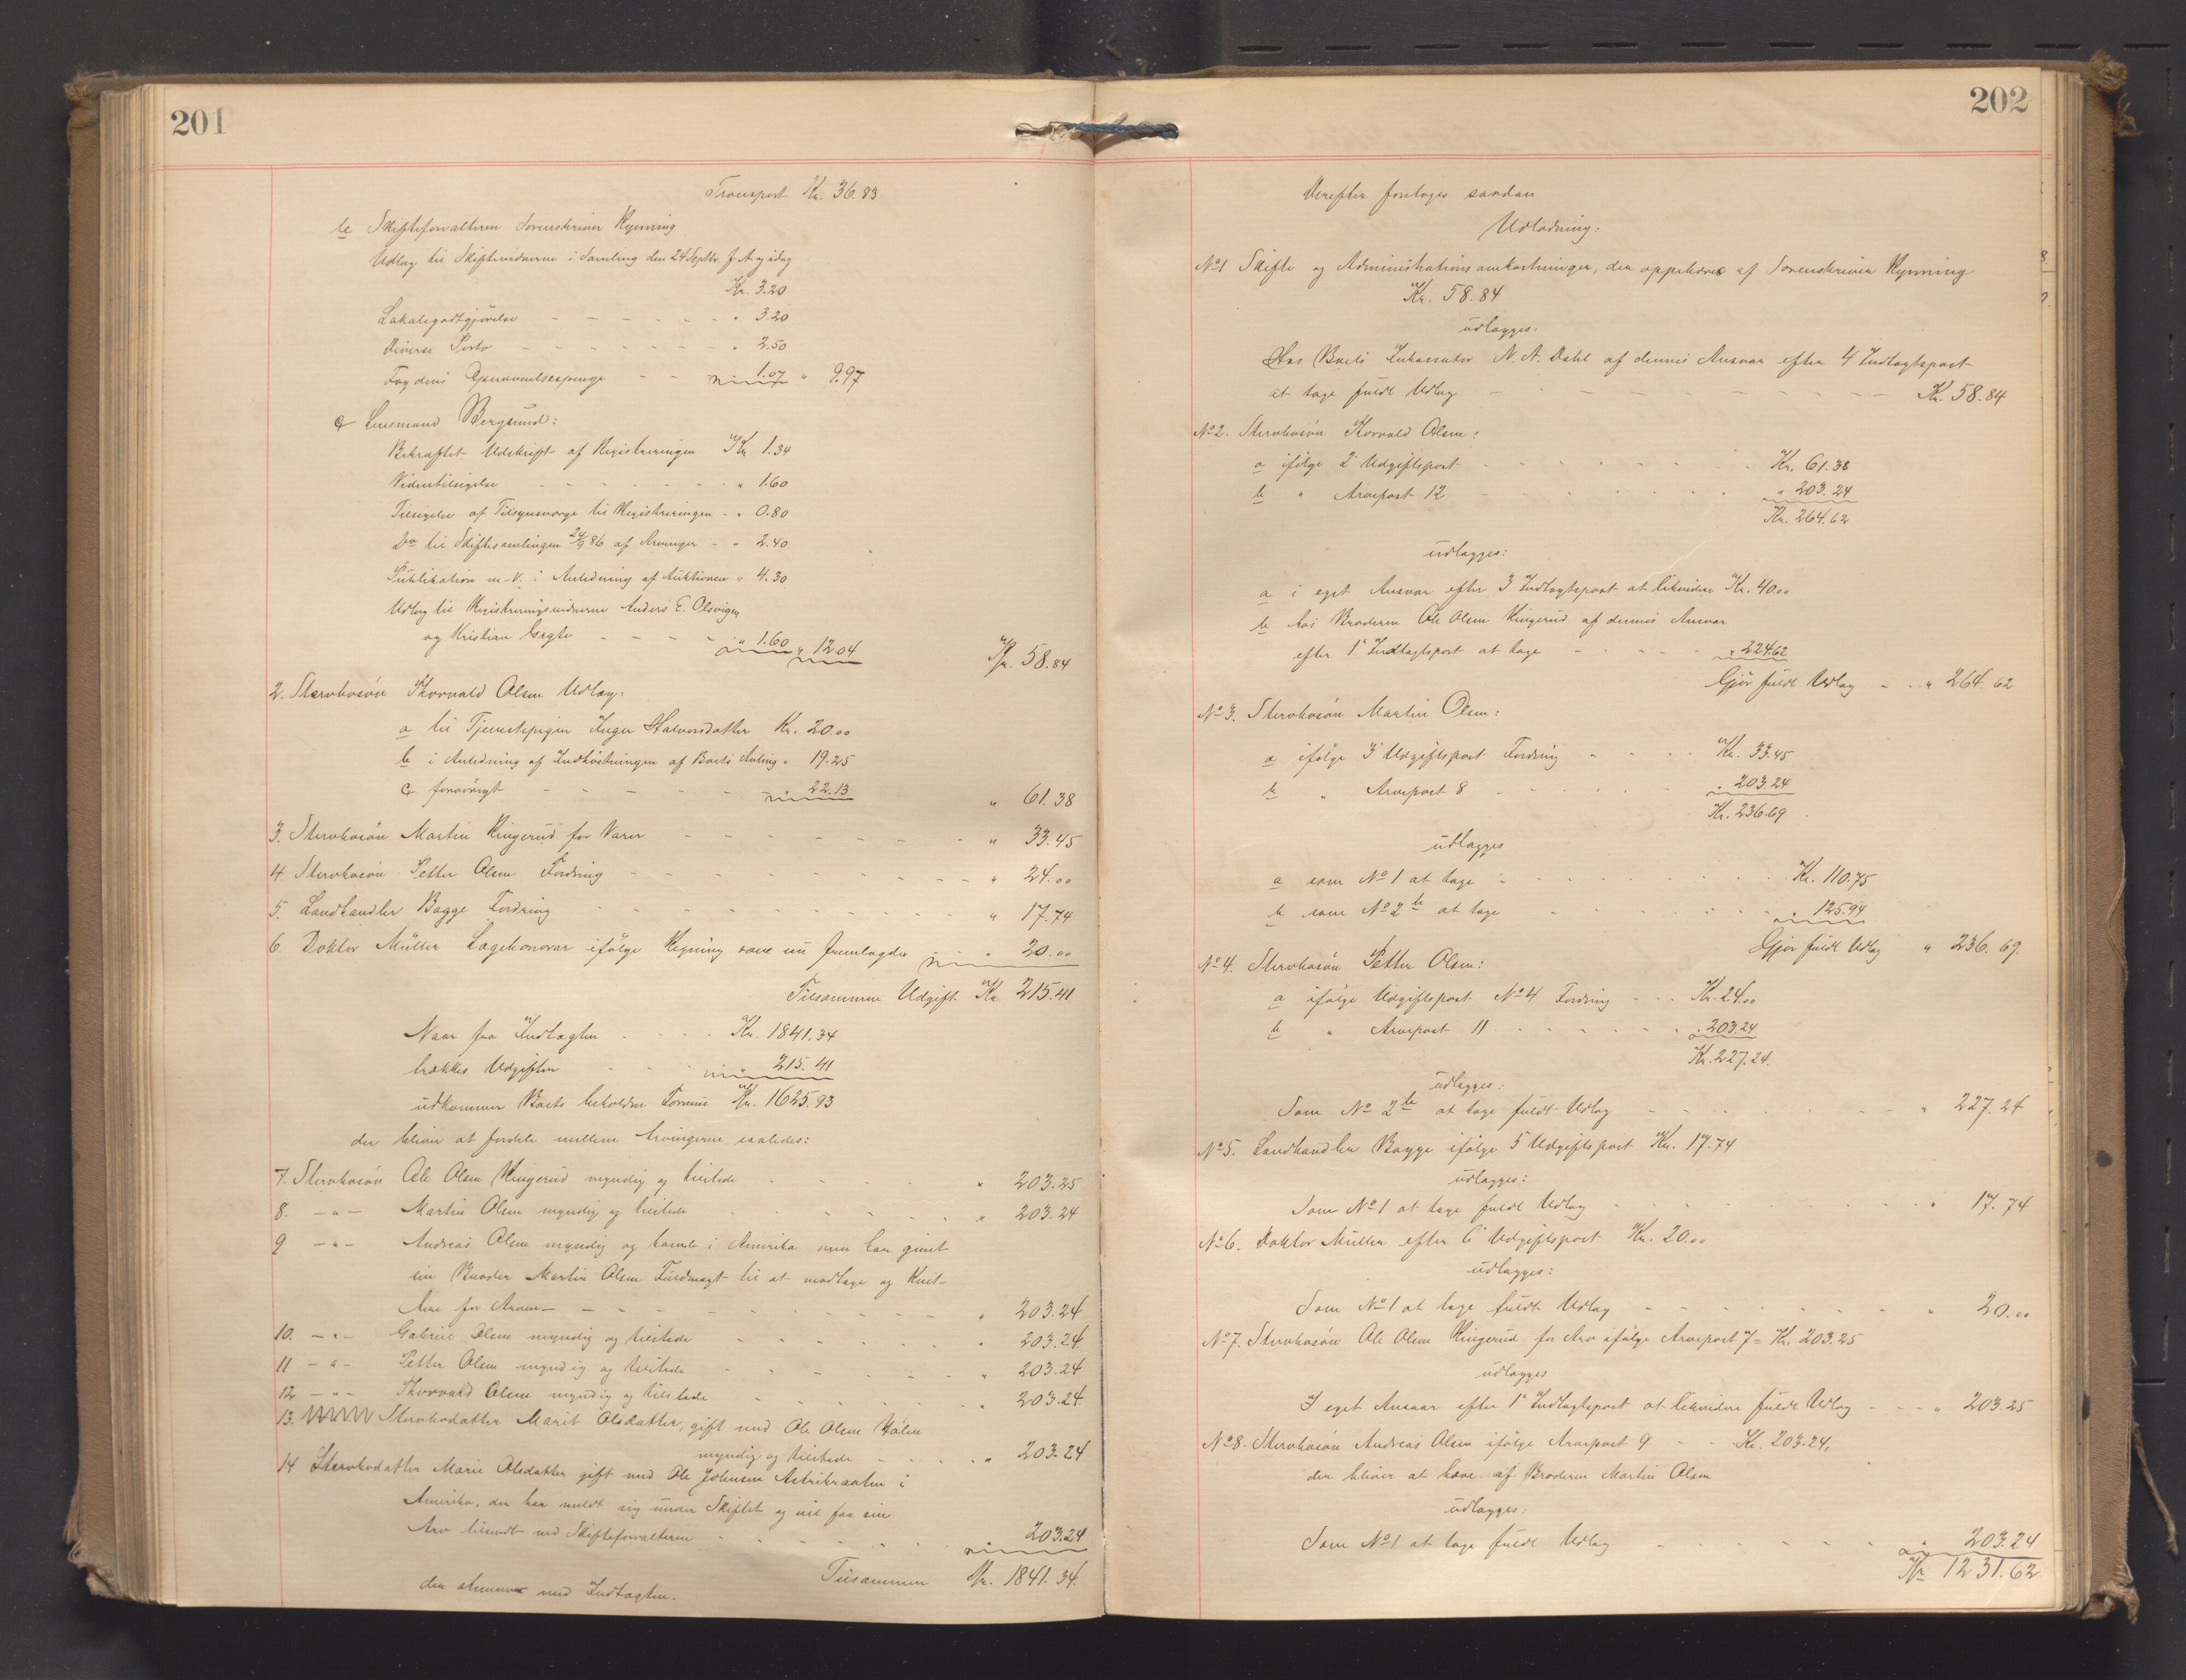 201
Transport Kr. 36.83
b Skifteforvalteren Sorenskriver Rynning
Udlæg til Skiftevidnerne i Samling den 24 Septbr. f. A. og idag
Kr. 3.20
Lokalegodtgjörelse - - - - - " 3.20
Diverse Porto - - - - - - " 2.50
Fogdens - - 1.07 " 9.97
c Lensmand Bergsund:
Bekræftet Udskrift af Registreringen Kr. 1.34
Vidnetilsigelse - - - - - " 1.60
Tilsigelse af Tilsynsværge til Registreringen - " 0.80
Do til Skiftesamlingen 24/9 86 af Arvinger - " 2.40
Publikation m. V. i Anledning af Auktionen " 4.30
Udlæg til Registreringsvidnerne Anders E. Olsvigen
og Kristian - - - - " 1.60 " 12.04 Kr. 58.84
2. Stervbosön Thorvald Olsen Udlæg:
a til Tjenestepigen Inger Halvorsdatter Kr. 20.00
b i Anledning af Indhöstningen af Boets Avling " 19.25
c forövrigt - - - - - - 22.13 " 61.38
3. Stervbosön Martin Ringerud for Varer - - - - - " 33.45
4. Stervbosön Petter Olsen Fordring - - - - - - " 24.00
5. Landhandler Bagge Fordring - - - - - - " 17.74
6. Doktor Müller Lægehonorar ifölge Regning som nu fremlagdes " 20.00
Tilsammen Udgift Kr. 215.41
Naar fra Indtægten - - - Kr. 1841.34
trækkes Udgiften - - - 215.41
udkommer Boets beholdne Formue Kr. 1625.93
der bliver at fordele mellem Arvingerne saaledes:
7. Stervbosön Ole Olsen Ringerud myndig og tilstede - - - " 203.25
8. - " - Martin Olsen myndig og tilstede - - - " 203.24
9 - " - Andreas Olsen myndig og boende i Amerika som har givet
sin Broder Martin Olsen Fuldmagt til at modtage og kvit-
tere for Arven - - - - - - " 203.24
10. - " - Gabriel Olsen myndig og tilstede - - - " 203.24
11 - " - Petter Olsen myndig og tilstede - - - " 203.24
12 - " - Thorvald Olsen myndig og tilstede - - - " 203.24
13. Stervbodatter Marit Olsdatter, gift med Ole Olsen
myndig og tilstede - - - " 203.24
14 Stervbodatter Marie Olsdatter gift med Ole Johnsen i
Amerika, der har meldt sig under Skiftet og vil faa sin
Arv tilsendt ved Skifteforvalteren - - - 203.24
Tilsammen Kr. 1841.34.
der stemmer med Indtægten.
202
Derefter foretages saadan
Udlodning:
No 1 Skifte og Administrations omkostninger, der oppebæres af Sorenskriver Rynning
Kr. 58.84
udlægges:
Hos Boets Inkassator N. A. Dahl af dennes Ansvar efter 4 Indtægtspost
at tage fuldt Udlæg - - - - - - Kr. 58.84
No 2. Stervbosön Torvald Olsen:
a ifölge 2 Udgiftspost - - - - Kr. 61.38
b " Arvepost 12 - - - - " 203.24
Kr. 264.62
udlægges:
a i eget Ansvar efter 3 Indtægtspost at likvidere Kr. 40.00
b hos Broderen Ole Olsen Ringerud af dennes Ansvar
efter 1 Indtægtspost at tage - - - - " 224.62
Gjör fuldt Udlæg - - " 264.62
No 3. Stervbosön Martin Olsen:
a ifölge 3 Udgiftspost Fordring - - - Kr. 33.45
b " Arvepost 8 - - - " 203.24
Kr. 236.69
udlægges
a som No 1 at tage - - - - - Kr. 110.75
b som No 2 b at tage - - - - " 125.94
Gjör fuldt Udlæg " 236.69.
No 4. Stervbosön Petter Olsen:
a ifölge Udgiftspost No 4 Fordring - - - Kr. 24.00
b " Arvepost 11 - - - - " 203.24
Kr. 227.24.
udlægges:
Som No 2 b at tage fuldt Udlæg - - - - - " 227.24
No 5. Landhandler Bagge ifölge 5 Udgiftspost Kr. 17.74
udlægges:
Som No 1 at tage fuldt Udlæg - - - - - " 17.74
No 6. Doktor Müller efter 6 Udgiftspost Kr. 20.00
udlægges:
Som No 1 at tage fuldt Udlæg - - - - - " 20.00
No 7. Stervbosön Ole Olsen Ringerud for Arv ifölge Arvepost 7 - Kr. 203.25
udlægges
I eget Ansvar efter 1 Indtægtspost at likvidere fuldt Udlæg - - - " 203.25
No 8. Stervbosön Andreas Olsen ifölge Arvepost 9 - - Kr. 203.24,
der bliver at hæve af Broderen Martin Olsen
udlægges:
Som No 1 at tage fuldt Udlæg - - - - - " 203.24
Kr. 1231.62